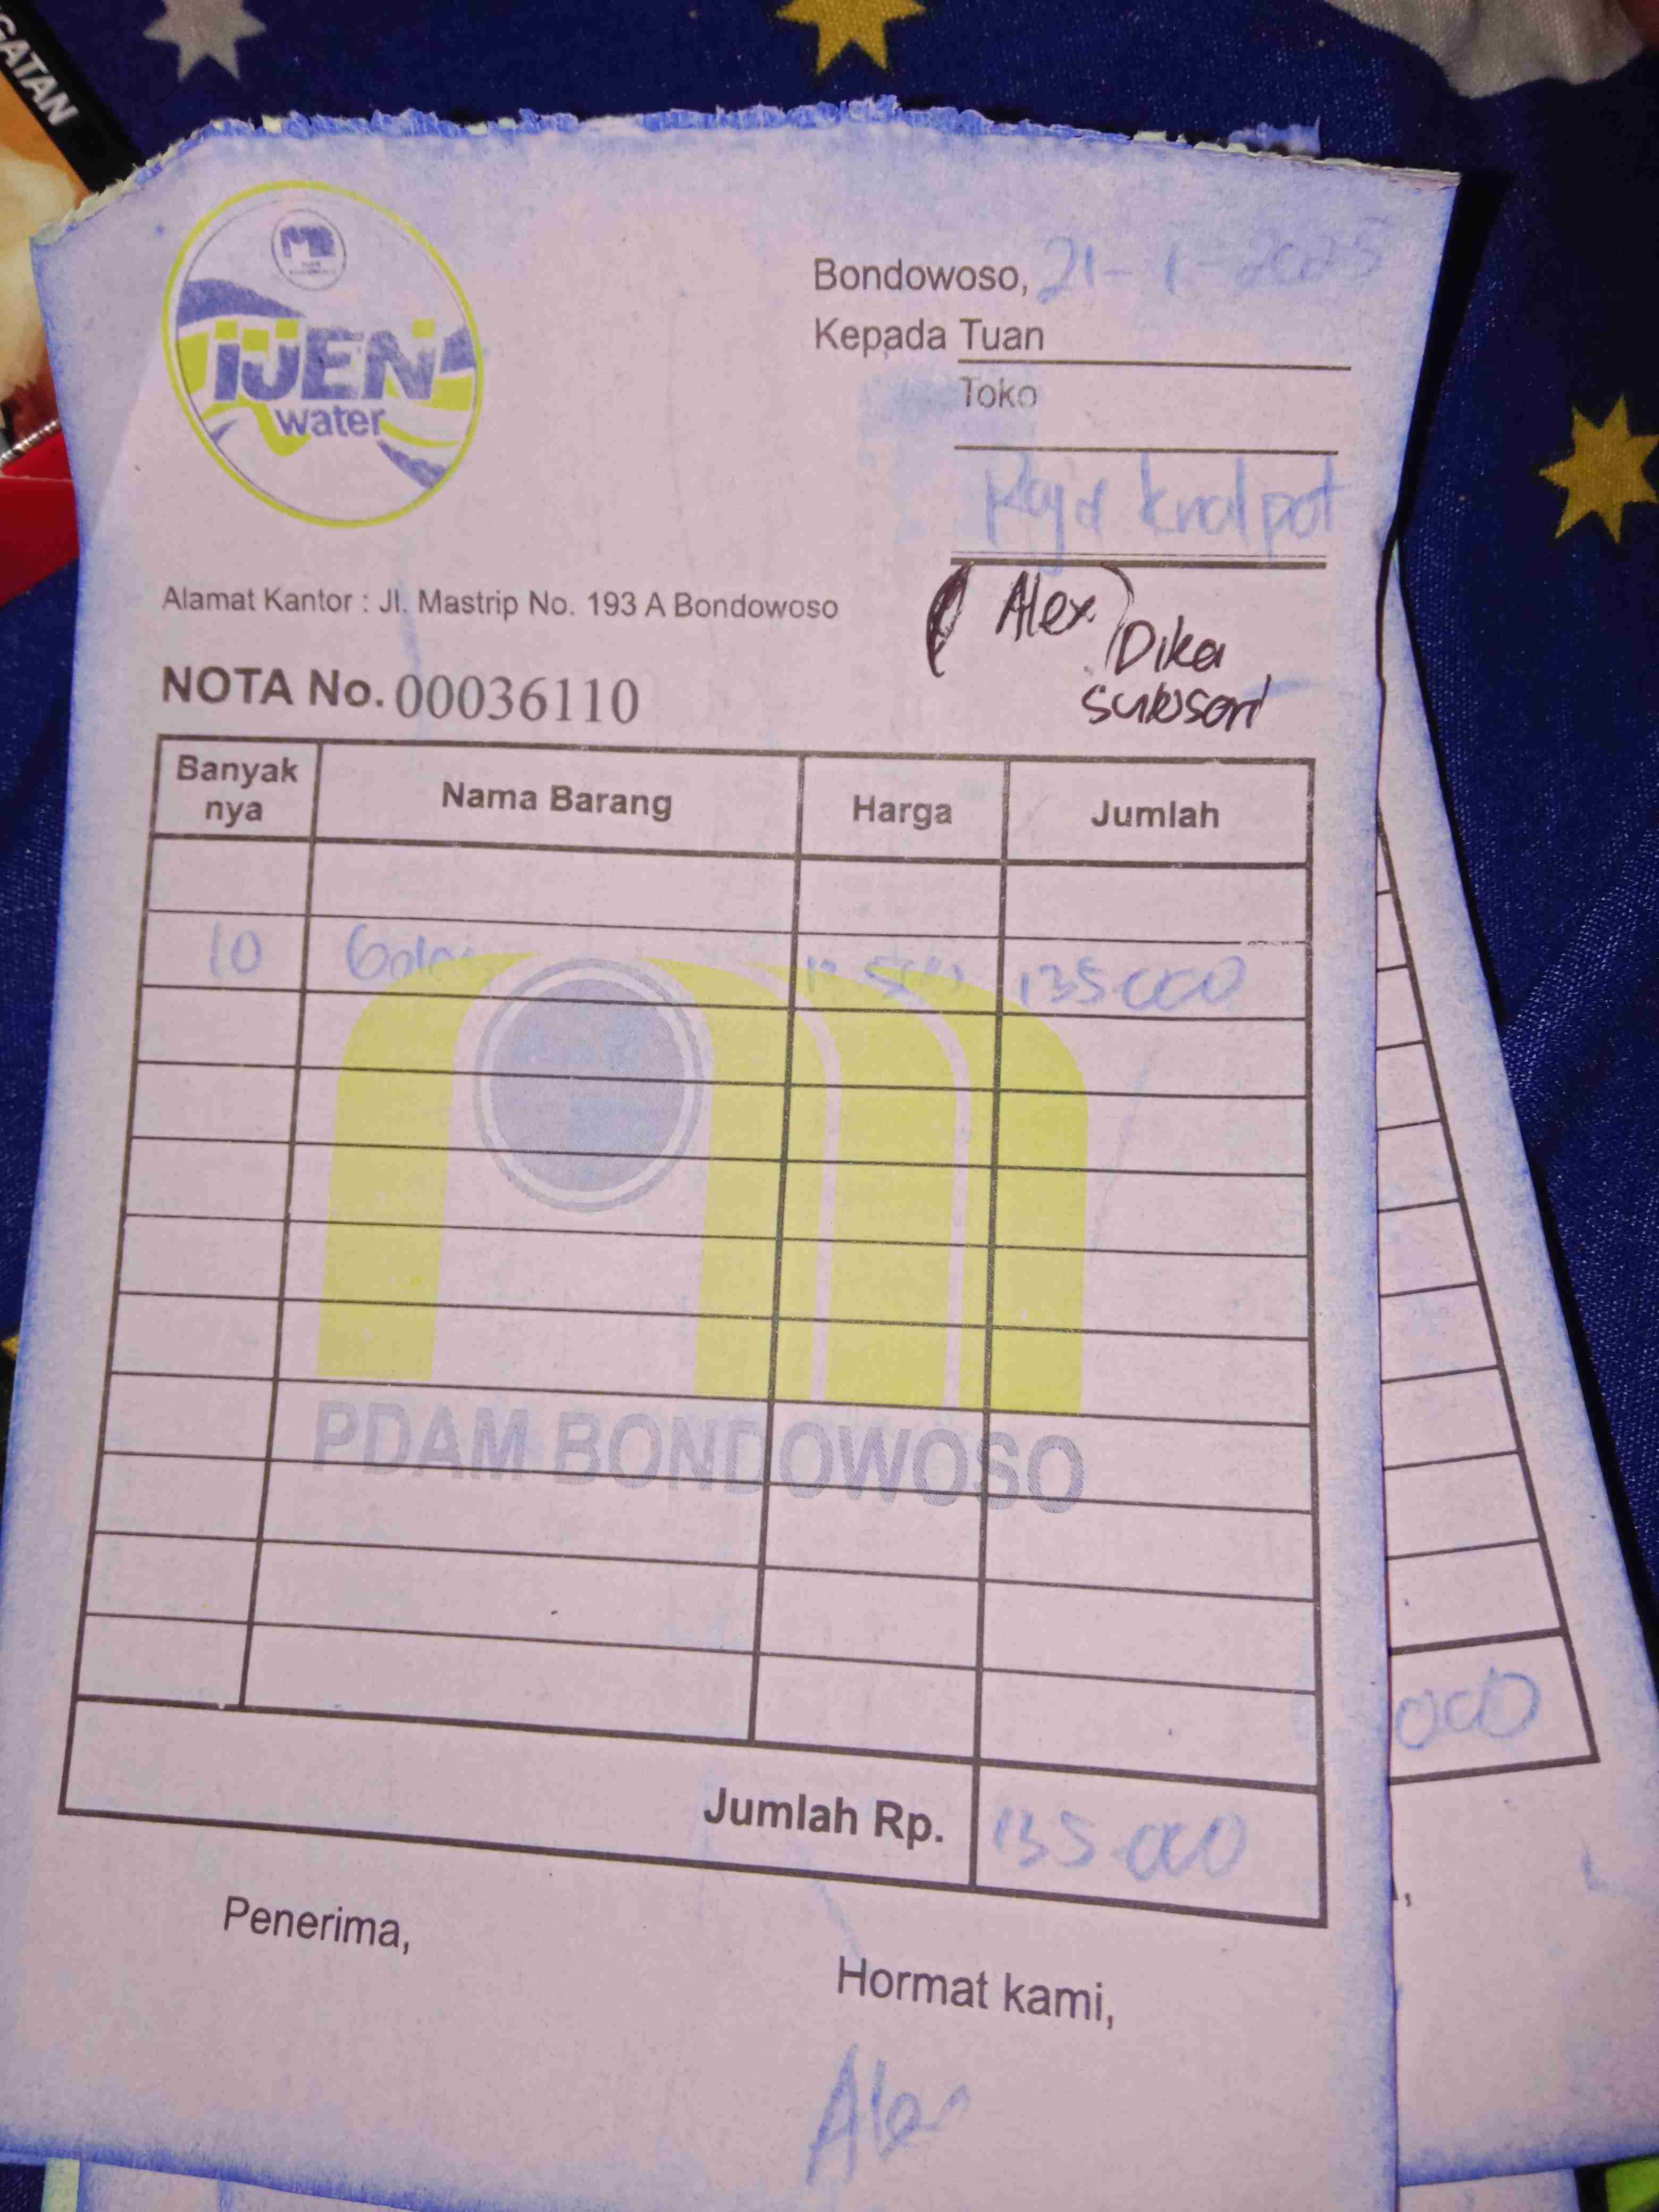 GATAN
IJEN
water
Bondowoso, 21-1-2025
Kepada Tuan
Toko
Raja knalpot
Alamat Kantor : Jl. Mastrip No. 193 A Bondowoso
(Alex)
Dika
NOTA No. 00036110
Banyak nya Nama Barang Harga Jumlah
10 135000
PDAM BONDOWOSO
000
Jumlah Rp. 135.000
Penerima,
Hormat kami,
Alex